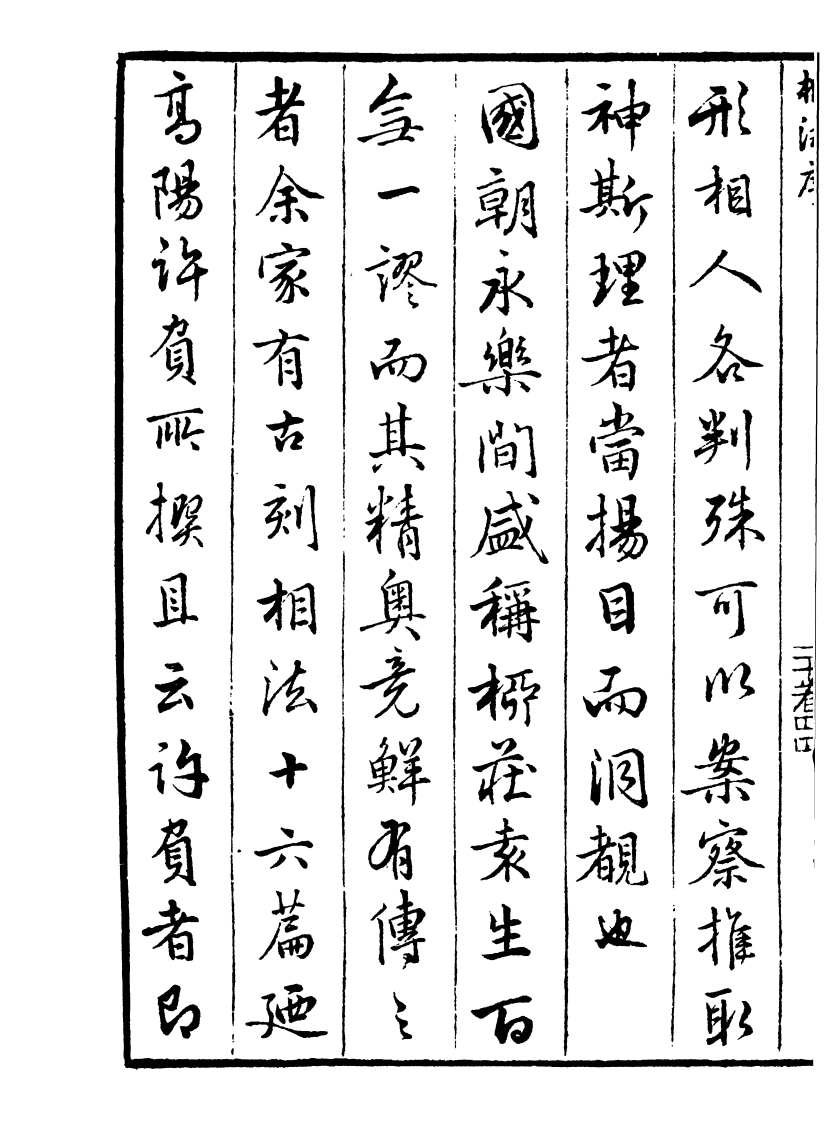 相法序
二十卷四四
形相人各判殊可以案察推取
神斯理者當揚目而洞覩也
國朝永樂間盛稱柳莊袁生百
無一謬而其精奧竟鮮有傳之
者余家有古刻相法十六篇廼
高陽許負所撰且云許負者即